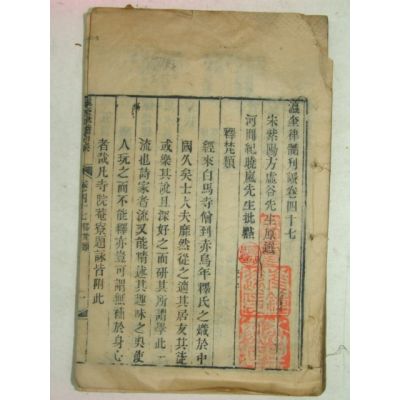 瀛奎律髓刊誤卷四十七
宋紫陽方虛谷先生原選
河間紀曉嵐先生批點
釋梵類
經來白馬寺僧到赤烏年釋氏之熾於中
國久矣士大夫靡然從之適其居友其徒
或樂其說且深好之而研其所謂學此一
流也詩家者流又能精述其趣味之奧使
人玩之而不能釋亦豈可謂無補於身心
者哉凡寺院菴寮題詠皆附此